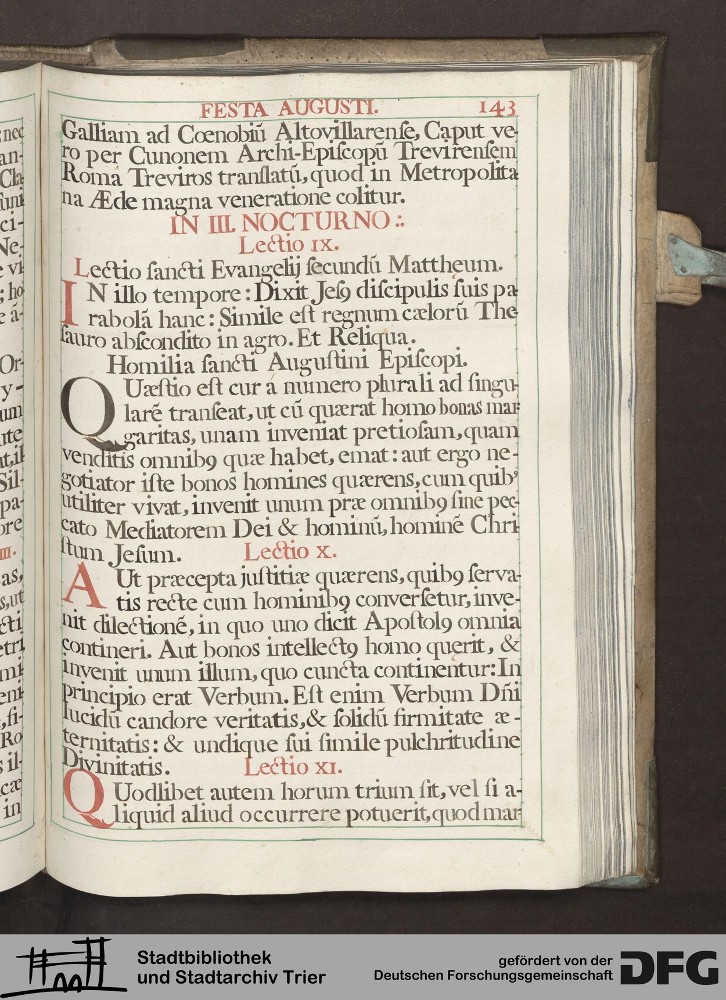 FESTA AUGUSTI. 143
Galliam ad Cœnobiũ Altovillarenſe, Caput ve-
ro per Cunonem Archi-Epiſcopũ Trevirenſem
Româ Treviros tranſlatũ, quod in Metropolita
na Æde magna veneratione colitur.
IN III. NOCTURNO :.
Lectio IX.
Lectio ſancti Evangelij ſecundũ Mattheum.
IN illo tempore: Dixit Jeſꝯ diſcipulis ſuis pa
rabolã hanc: Simile eſt regnum cælorũ The
ſauro abſcondito in agro. Et Reliqua.
Homilia ſancti Auguſtini Epiſcopi.
QUæſtio eſt cur á numero plurali ad ſingu-
larẽ tranſeat, ut cũ quærat homo bonas mar
garitas, unam inveniat pretioſam, quam
venditis omnibꝯ quæ habet, emat: aut ergo ne-
gotiator iſte bonos homines quærens, cum quibꝰ
utiliter vivat, invenit unum præ omnibꝯ ſine pec-
cato Mediatorem Dei & hominũ, hominẽ Chri
ſtum Jeſum. Lectio X.
AUt præcepta juſtitiæ quærens, quibꝯ ſerva-
tis recte cum hominibꝯ converſetur, inve-
nit dilectionẽ, in quo uno dicit Apoſtolꝯ omnia
contineri. Aut bonos intellectꝯ homo querit, &
invenit unum illum, quo cuncta continentur: In
principio erat Verbum. Eſt enim Verbum Dñi
lucidũ candore veritatis, & ſolidũ firmitate æ-
ternitatis: & undique ſui ſimile pulchritudine
Divinitatis. Lectio XI.
QUodlibet autem horum trium ſit, vel ſi a-
liquid aliud occurrere potuerit, quod mar
Stadtbibliothek
und Stadtarchiv Trier
gefördert von der
Deutschen Forschungsgemeinschaft
DFG